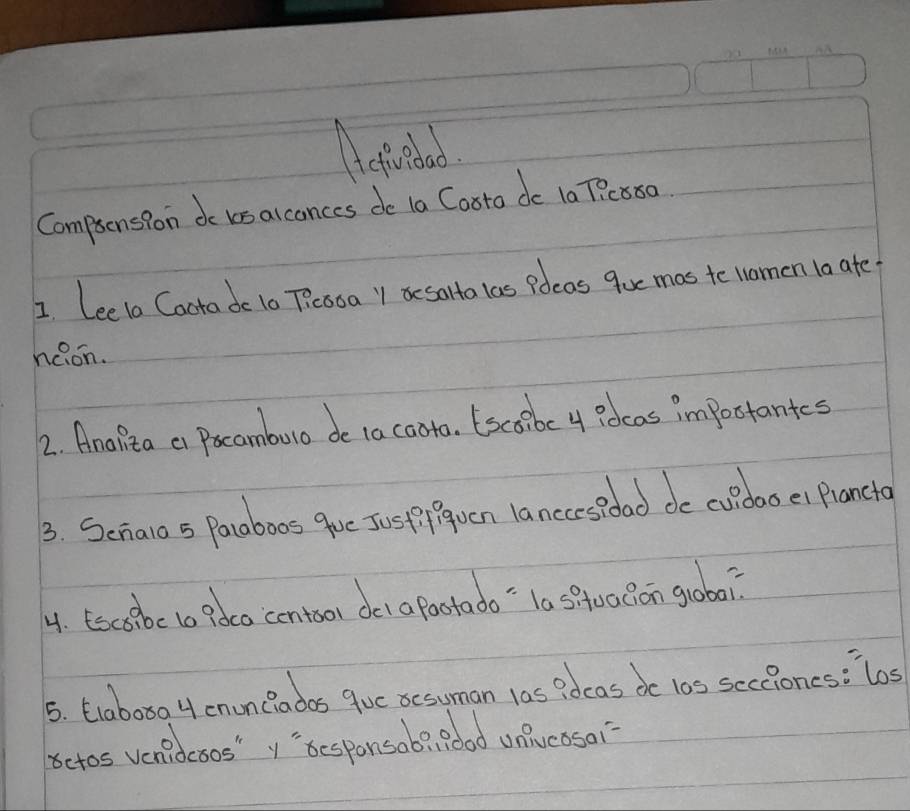 DD MM AA
Actividad.
Comprension de los alcances de la Carta de la Tierra.
1. Lee la Carta de la Tierra y resalta las ideas que mas te llamen la ate-
nción.
2. Analiza el Pracambulo de la carta. Escribe 4 ideas importantes
3. Señala 5 Palabras que Justifiquen la nececesidad de cuidar el Planeta
4. Escribe la idea central del apartado "la situación global".
5. Elabora 4 enunciados que resuman las ideas de las secciones: "los
retos venideros" y "responsabilidad universal"